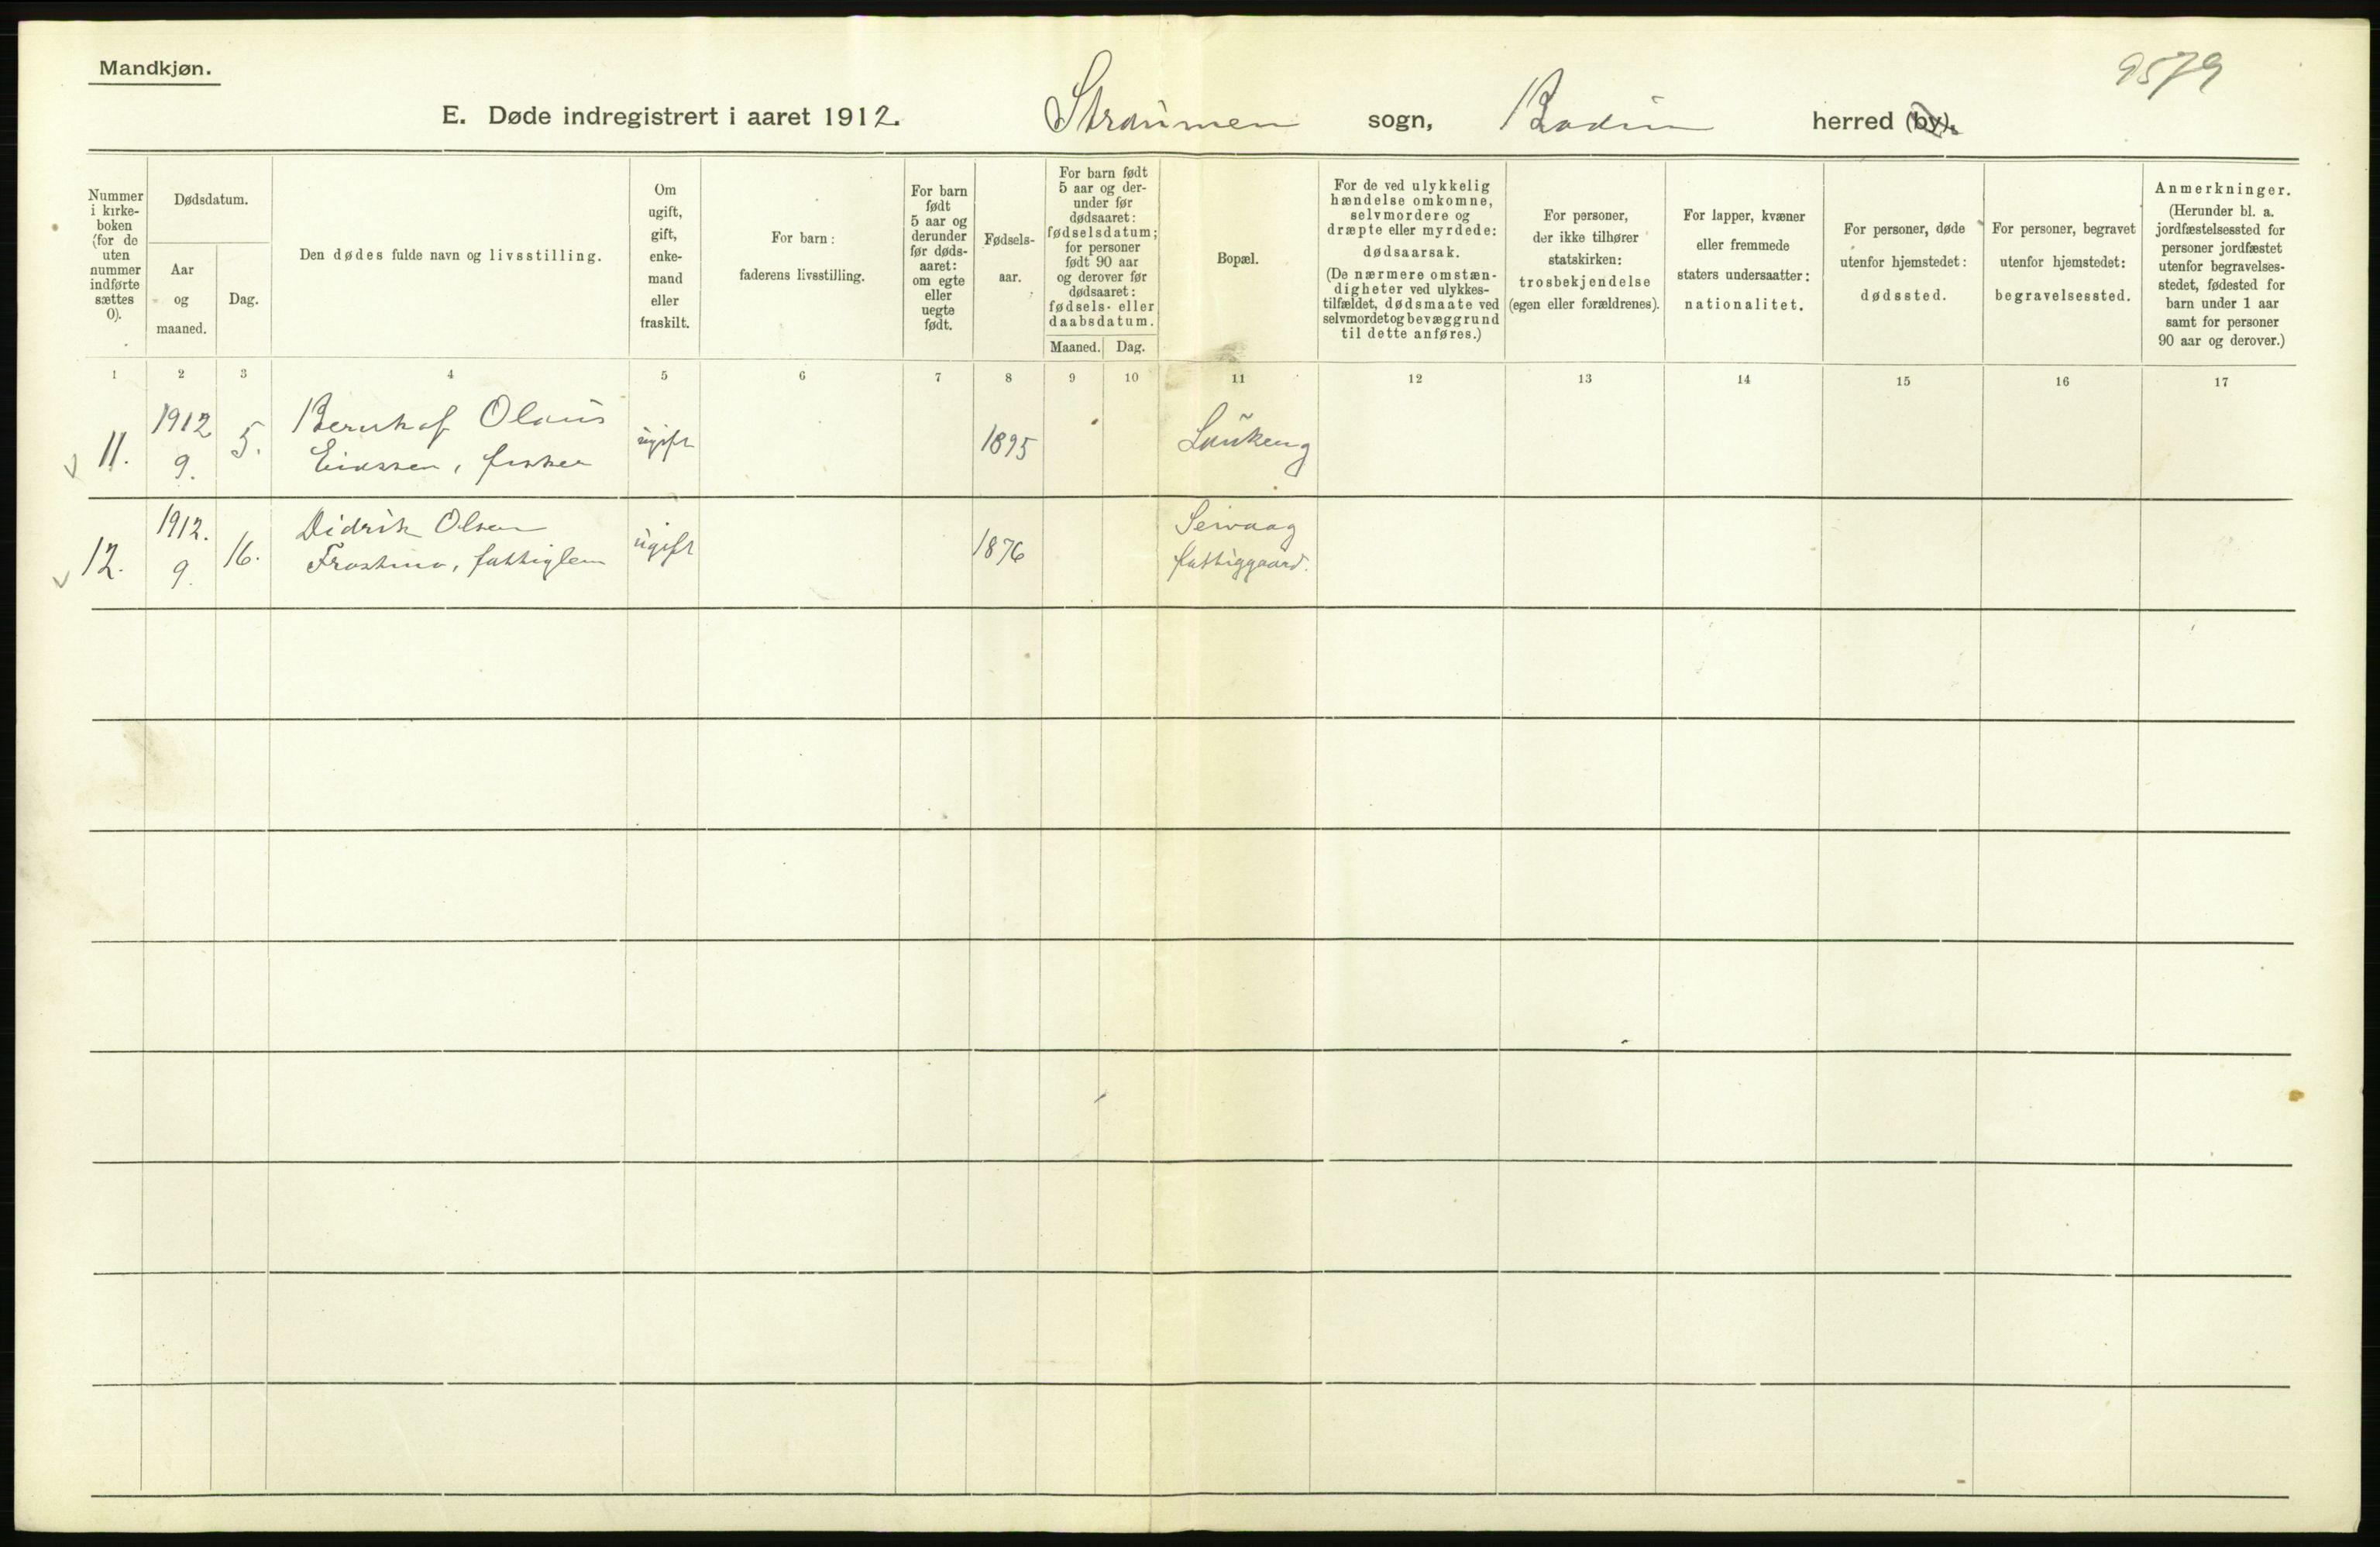 Mandkjøn.
9579
E. Døde indregistrert i aaret 1912. Straumen sogn, Bodin herred (by).
Nummer i kirke-boken (for de uten nummer indførte sættes 0).
Dødsdatum.
Aar og maaned.
Dag.
Den dødes fulde navn og livsstilling.
Om ugift, gift, enke-mand eller fraskilt.
For barn: faderens livsstilling.
For barn født 5 aar og derunder før døds-aaret: om egte eller uegte født.
Fødsels-aar.
For barn født 5 aar og der-under før dødsaaret: fødselsdatum; for personer født 90 aar og derover før dødsaaret: fødsels- eller daabsdatum.
Maaned. Dag.
Bopæl.
For de ved ulykkelig hændelse omkomne, selvmordere og dræpte eller myrdede: dødsaarsak. (De nærmere omstæn-digheter ved ulykkes-tilfældet, dødsmaate ved selvmordet og bevæggrund til dette anføres.)
For personer, der ikke tilhører statskirken: trosbekjendelse (egen eller forældrenes).
For lapper, kvæner eller fremmede staters undersaatter: nationalitet.
For personer, døde utenfor hjemstedet: dødssted.
For personer, begravet utenfor hjemstedet: begravelsessted.
Anmerkninger. (Herunder bl. a. jordfæstelsessted for personer jordfæstet utenfor begravelses-stedet, fødested for barn under 1 aar samt for personer 90 aar og derover.)
1 2 3 4 5 6 7 8 9 10 11 12 13 14 15 16 17
11. 1912 9. 5. Bernhof Olaus
Einssen, fisker ugift 1895 Laukeng
12. 1912. 9. 16. Didrik Olsen
Frostmo, fattiglem ugift 1876 Seivaag
fattiggaard.